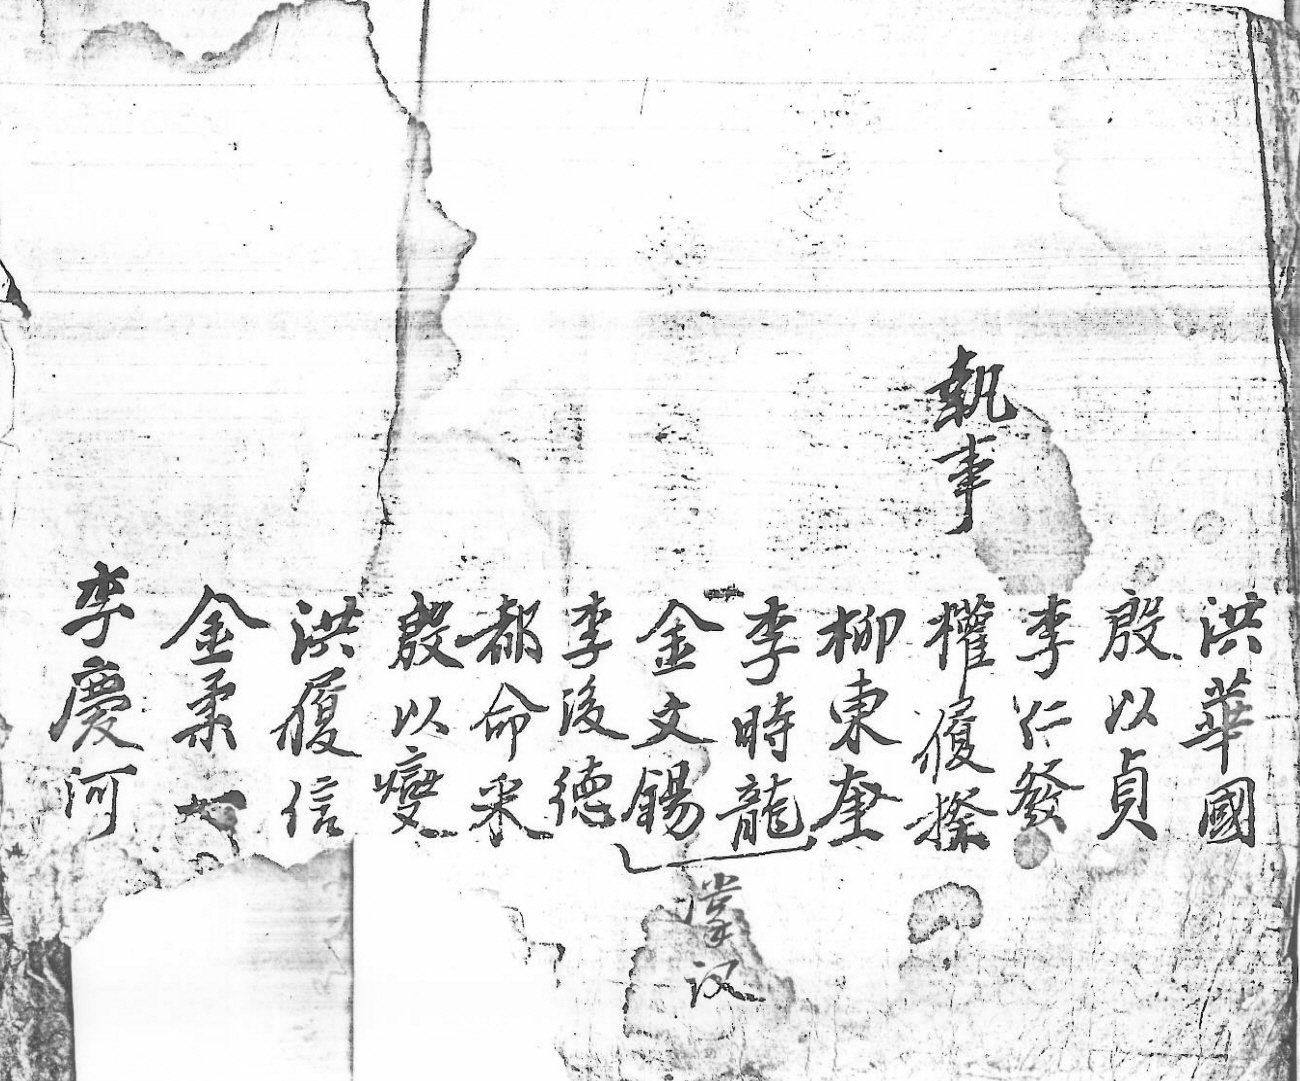 執事
洪華國
殷以貞
李仁發
權履
柳東奎
李時龍
金文錫
掌議
李後德
都命采
殷以燮
洪履信
金柔
李慶河